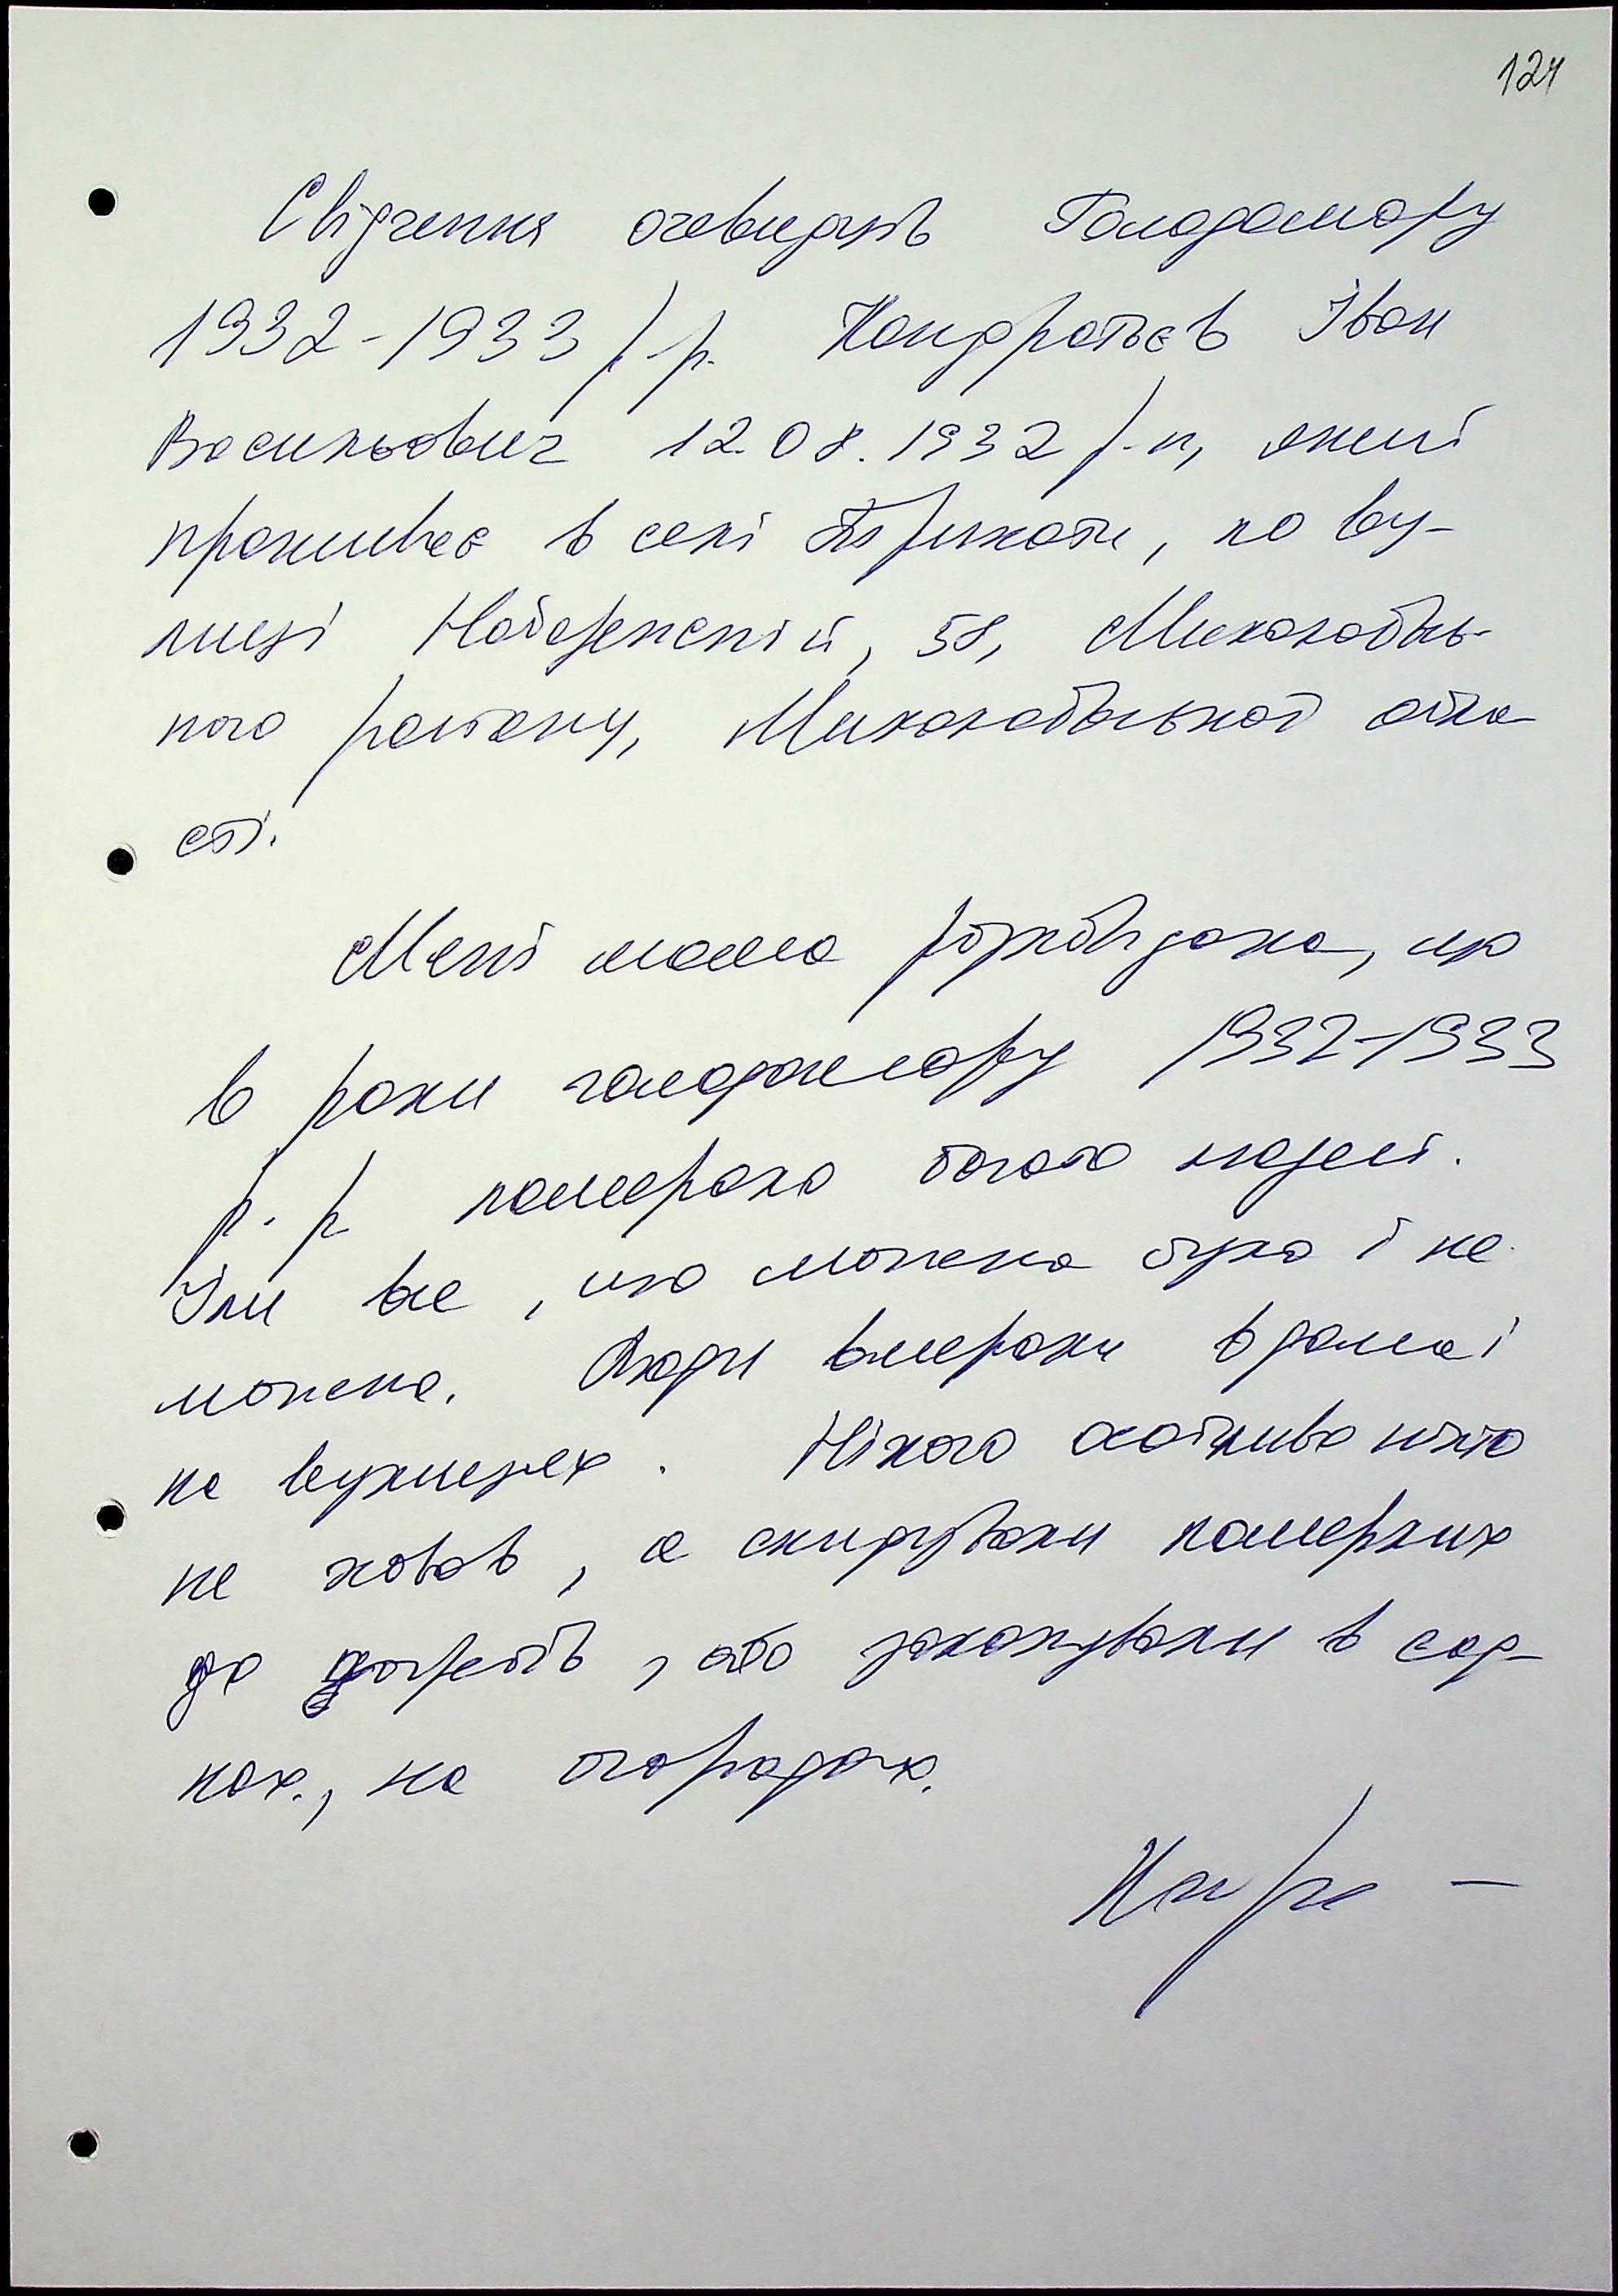 124
Свідчення очевидців Голодомору
1932-1933 р.р. Кондратьєв Іван
Васильович 12.08.1932 р.н, який
проживає в селі Трихати, по ву-
лиці Набережній, 58, Миколаївсь-
кого району, Миколаївської обла-
сті.
Мені мама розповідала, що
в роки голодомору 1932-1933
р.р померало багато людей.
Їли все, що можна було і не
можна. Люди вмерали вдома і
на вулицях. Нікого особливо ніхто
не ховав, а скидували померлих
до , або закопували в сад-
ках., на огородах.